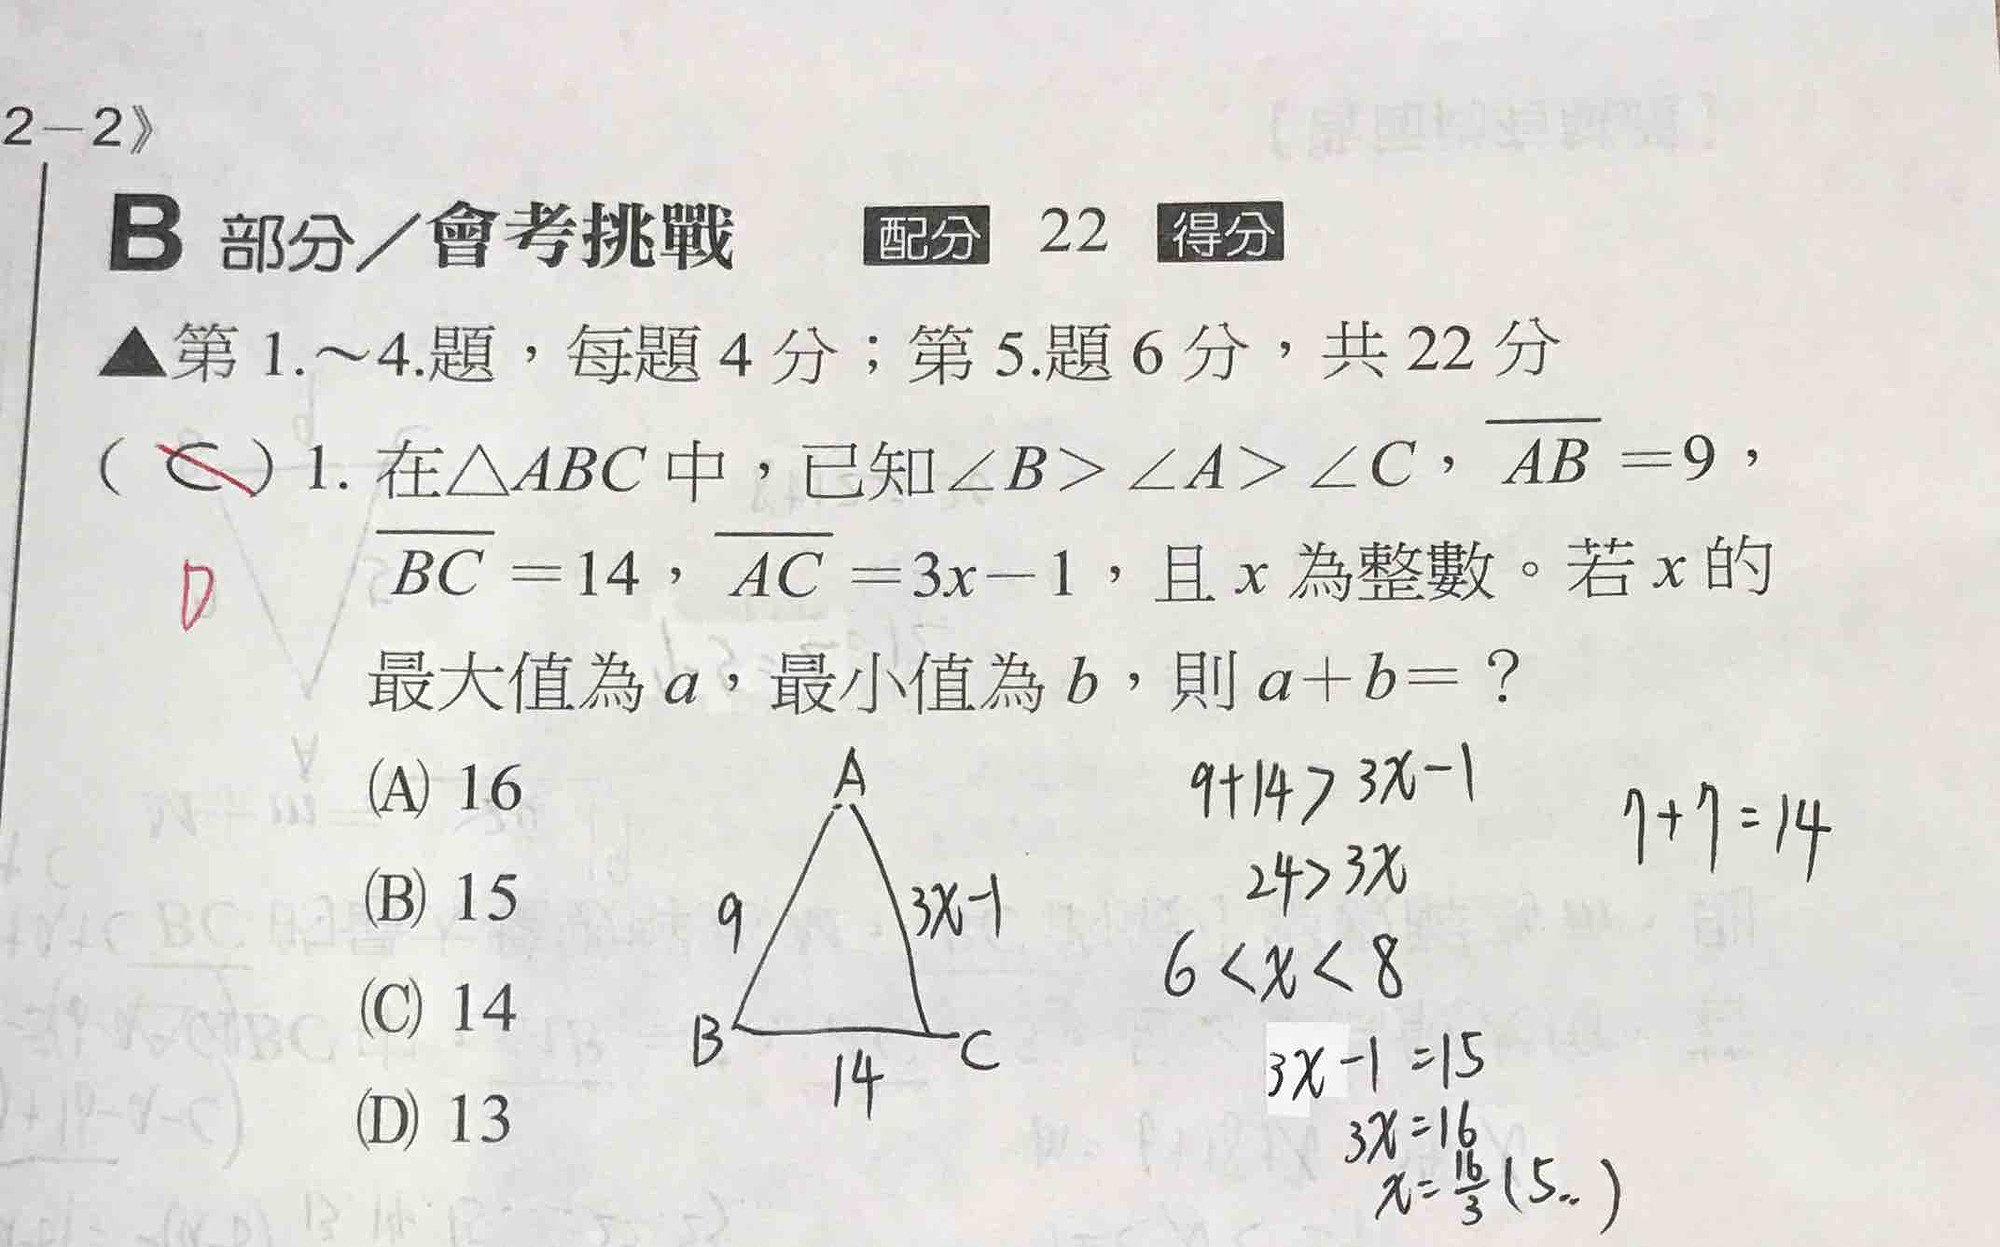 2－2》
B 部分／會考挑戰 配分 22 得分
▲第 1.～4.題，每題 4 分；第 5.題 6 分，共 22 分
（ C ）1. 在△ABC 中，已知∠B＞∠A＞∠C，AB＝9，
D
BC＝14，AC＝3x－1，且 x 為整數。若 x 的
最大值為 a，最小值為 b，則 a＋b＝？
(A) 16
(B) 15
(C) 14
(D) 13
A
9
3x-1
B
14
C
9+14>3x-1
24>3x
6<x<8
3x-1=15
3x=16
x=16/3(5..)
7+7=14